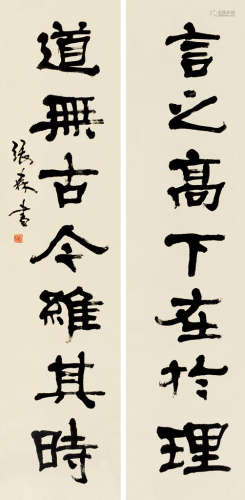 言之高下在於理
道無古今維其時
張森書